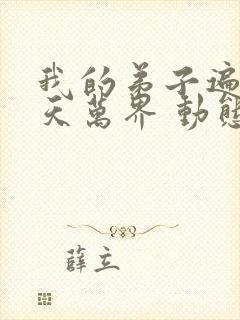 我的弟子遍
天萬界 動態
薛立